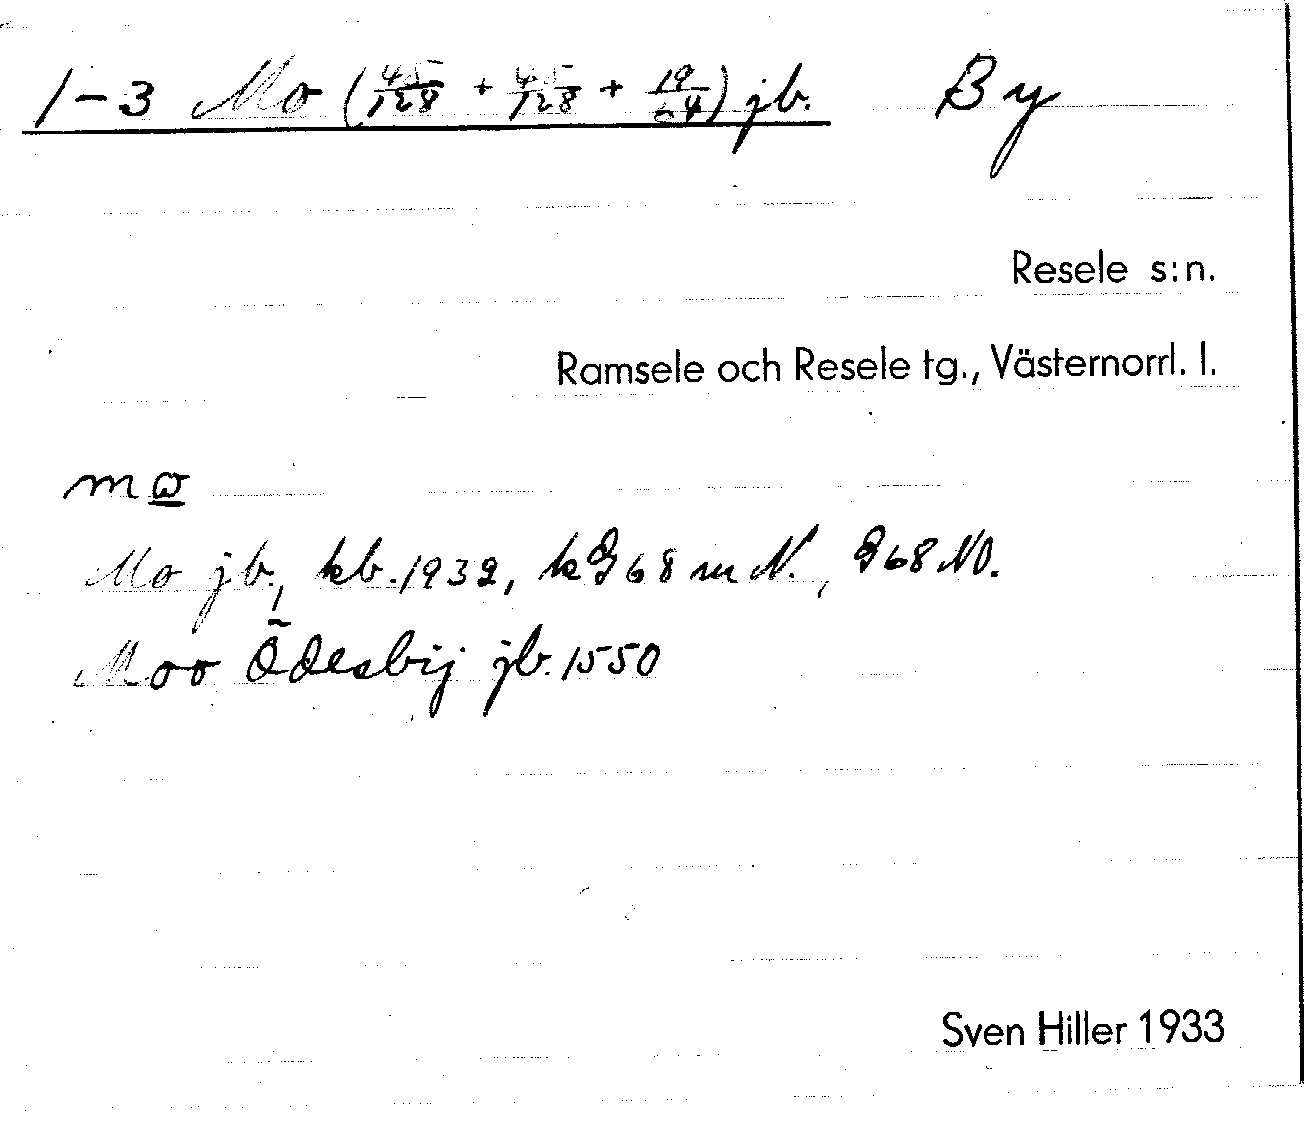 1-3 Mo (45/128 + 45/128 + 19/64) jb. By
Resele s:n.
Ramsele och Resele tg., Västernorrl. l.
Mo jb., kb. 1932, k 68 m N., 68 NO.
Moo Ödesbij jb. 1550
Sven Hiller 1933